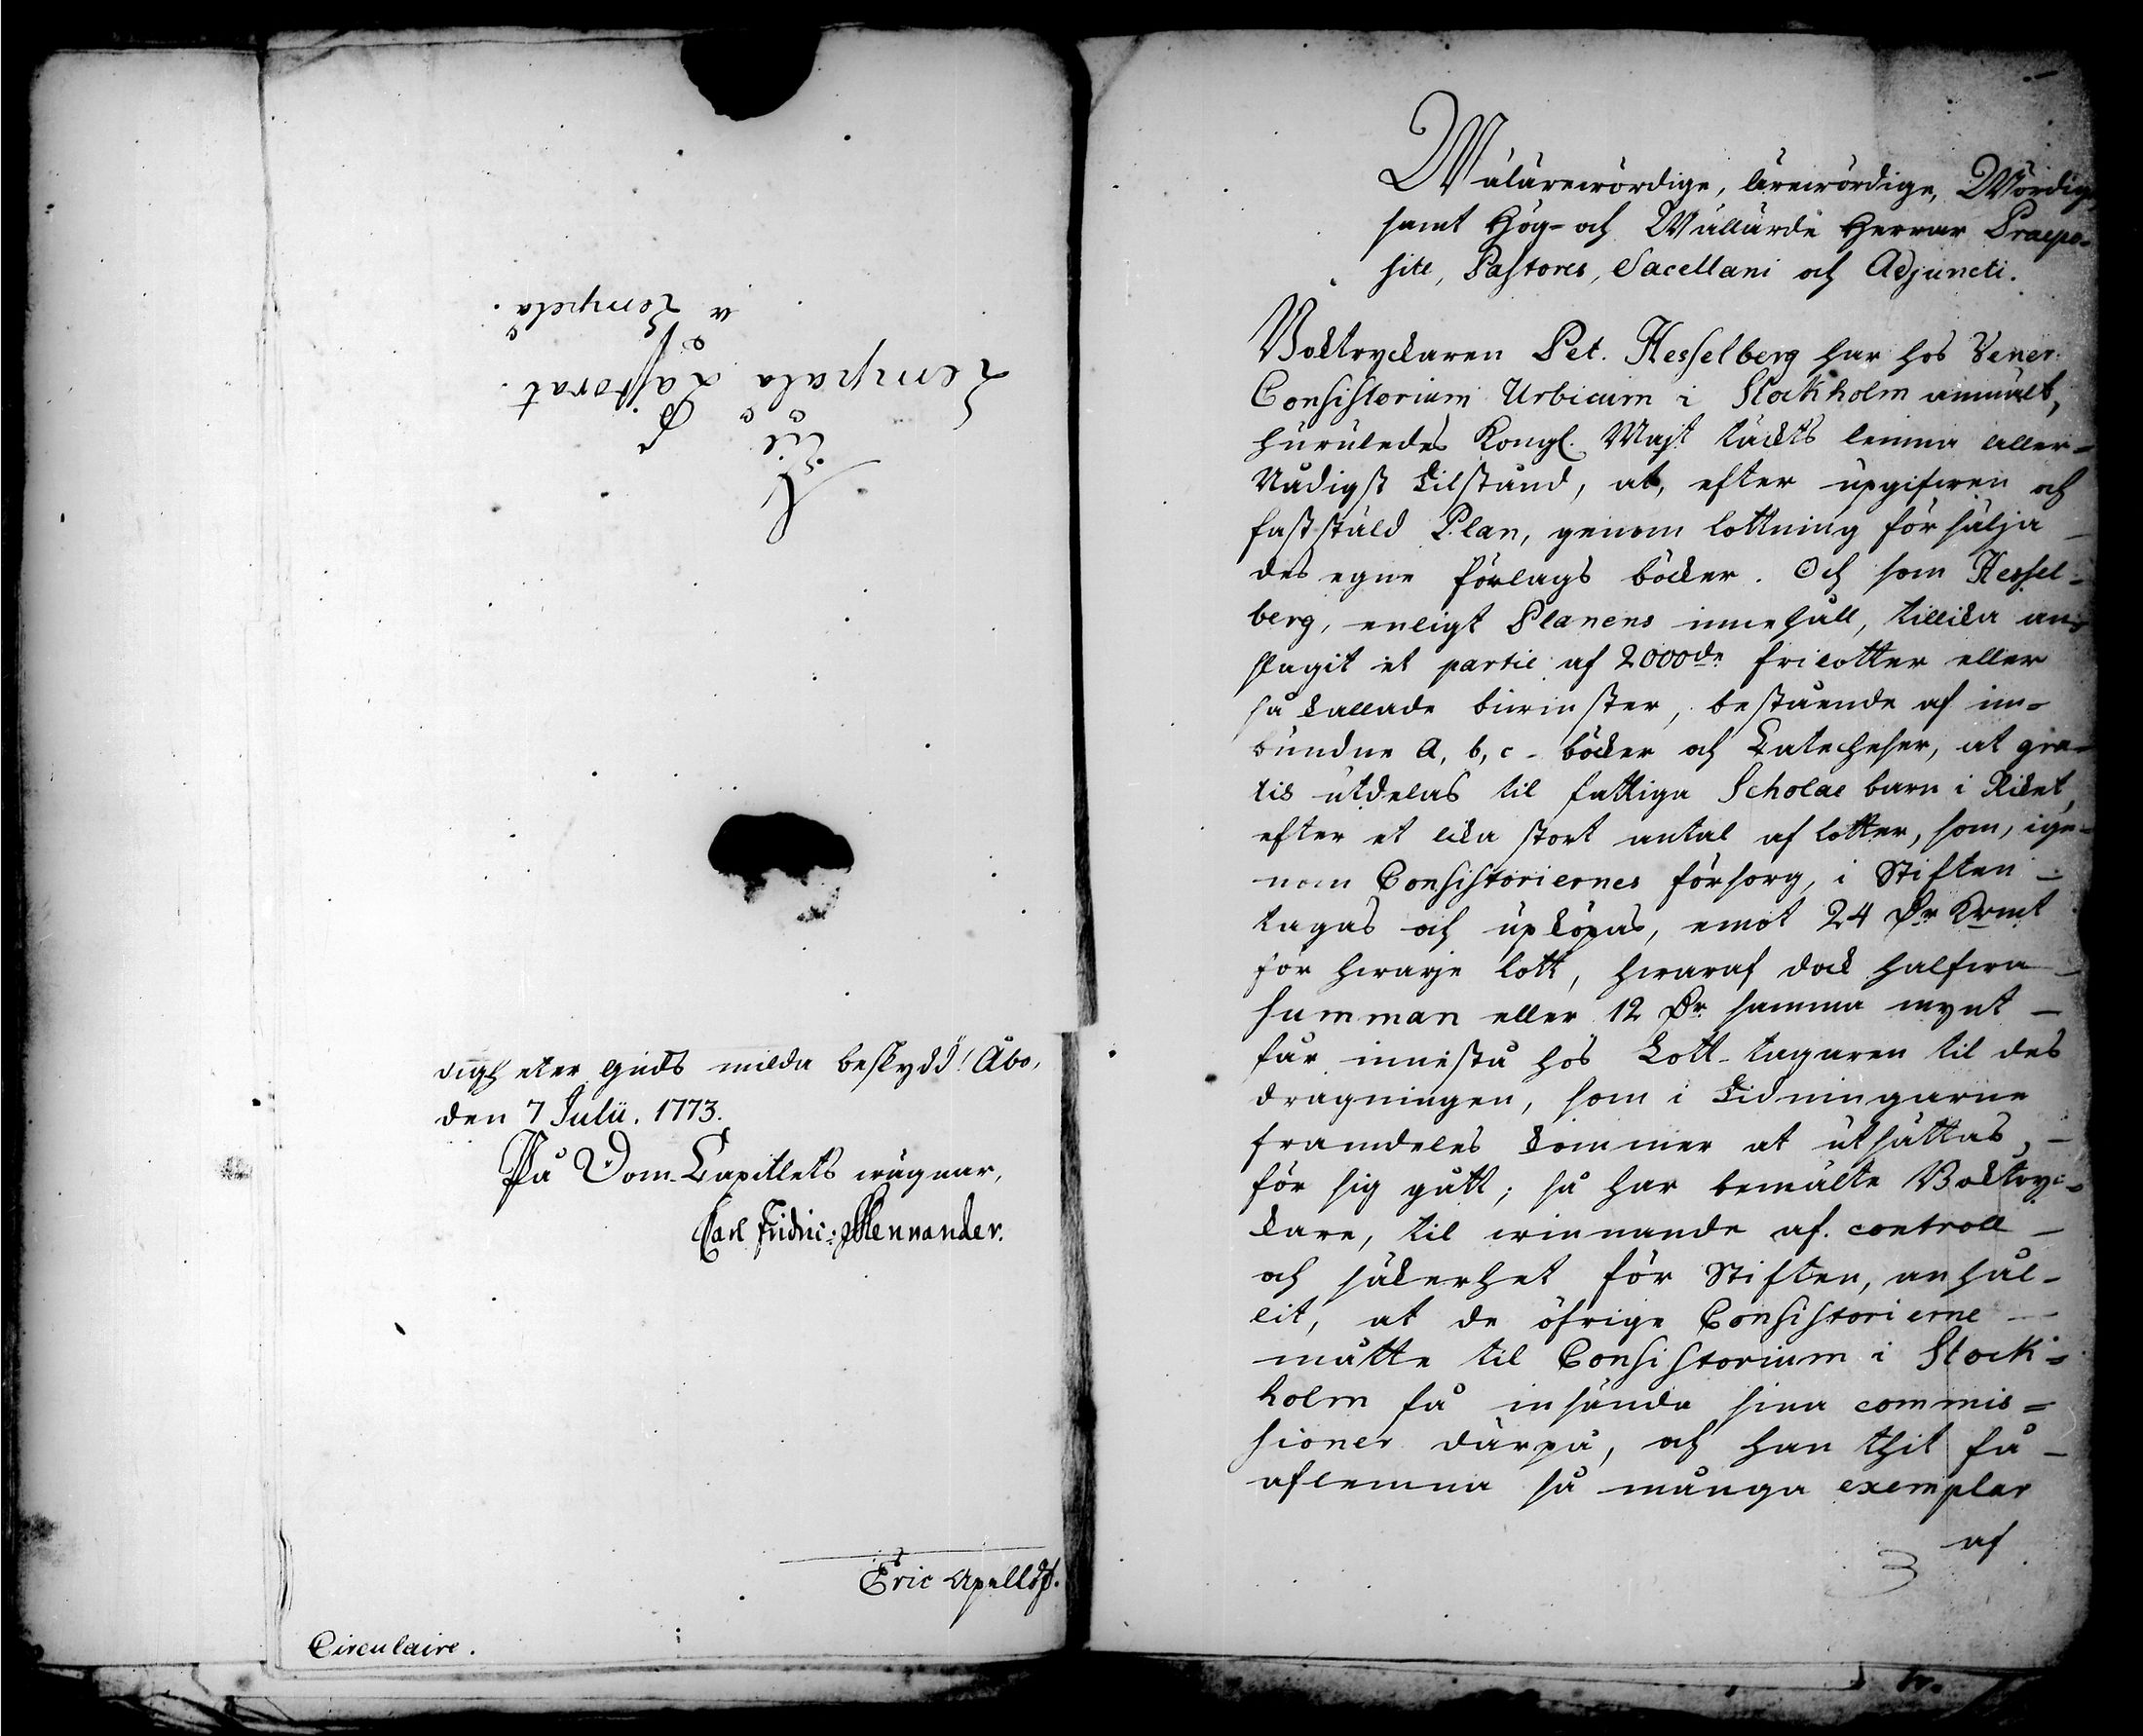 Til
Lempälä Pastorat.
å
Lempelä.
digh eter Guds milda beskydd! Åbo,
den 7 Julii. 1773.
På Dom-Capitlets wägnar,
Carl Fridric: Mennander.
Eric
Circulaire.
Wälärewördige, lärewördige, Wördige,
samt Hög- och Wällärde Herrar Praepo-
site, Pastores, Sacellani och Adjuncti.
Boktryckaren Pet. Hesselberg har hos Vener.
Consistorium Urbicum i Stockholm anmält,
huruledes Kongl. Majt täckts lemna aller-
Nådigst tilstånd, at, efter upgifwen och
faststäld Plan, genom lottning försälja
des egne förlags böcker. Och som Hessel-
berg, enligt Planens innehåll, tillika an-
slagit et partie af 2000de frilotter eller
så kallade winster, bestående af in-
bundne A, b, c- böcker och Catecheser, at gra-
tis utdelas til fattiga Scholae barn i Riket,
efter et lika stort antal af lotter, som, ige-
nom Consistoriernes försorg, i Stiften
tagas och upköpas, emot 24 Ör Krmt
för hwarje lott, hwaraf dock halfwa
summan eller 12 Ör samma mynt
får innestå hos Lott-tagaren til des
dragningen, som i Tidningarne
framdeles kommer at utsättas,
för sig gått; så har bemälte Boktryc-
kare, til winnande af controll
och säkerhet för Stiften, anhål-
lit, at de öfrige Consistorierne
måtte til Consistorium i Stock-
holm få insända sina commis-
sioner därpå, och han thit få
aflemna så många exemplar
af